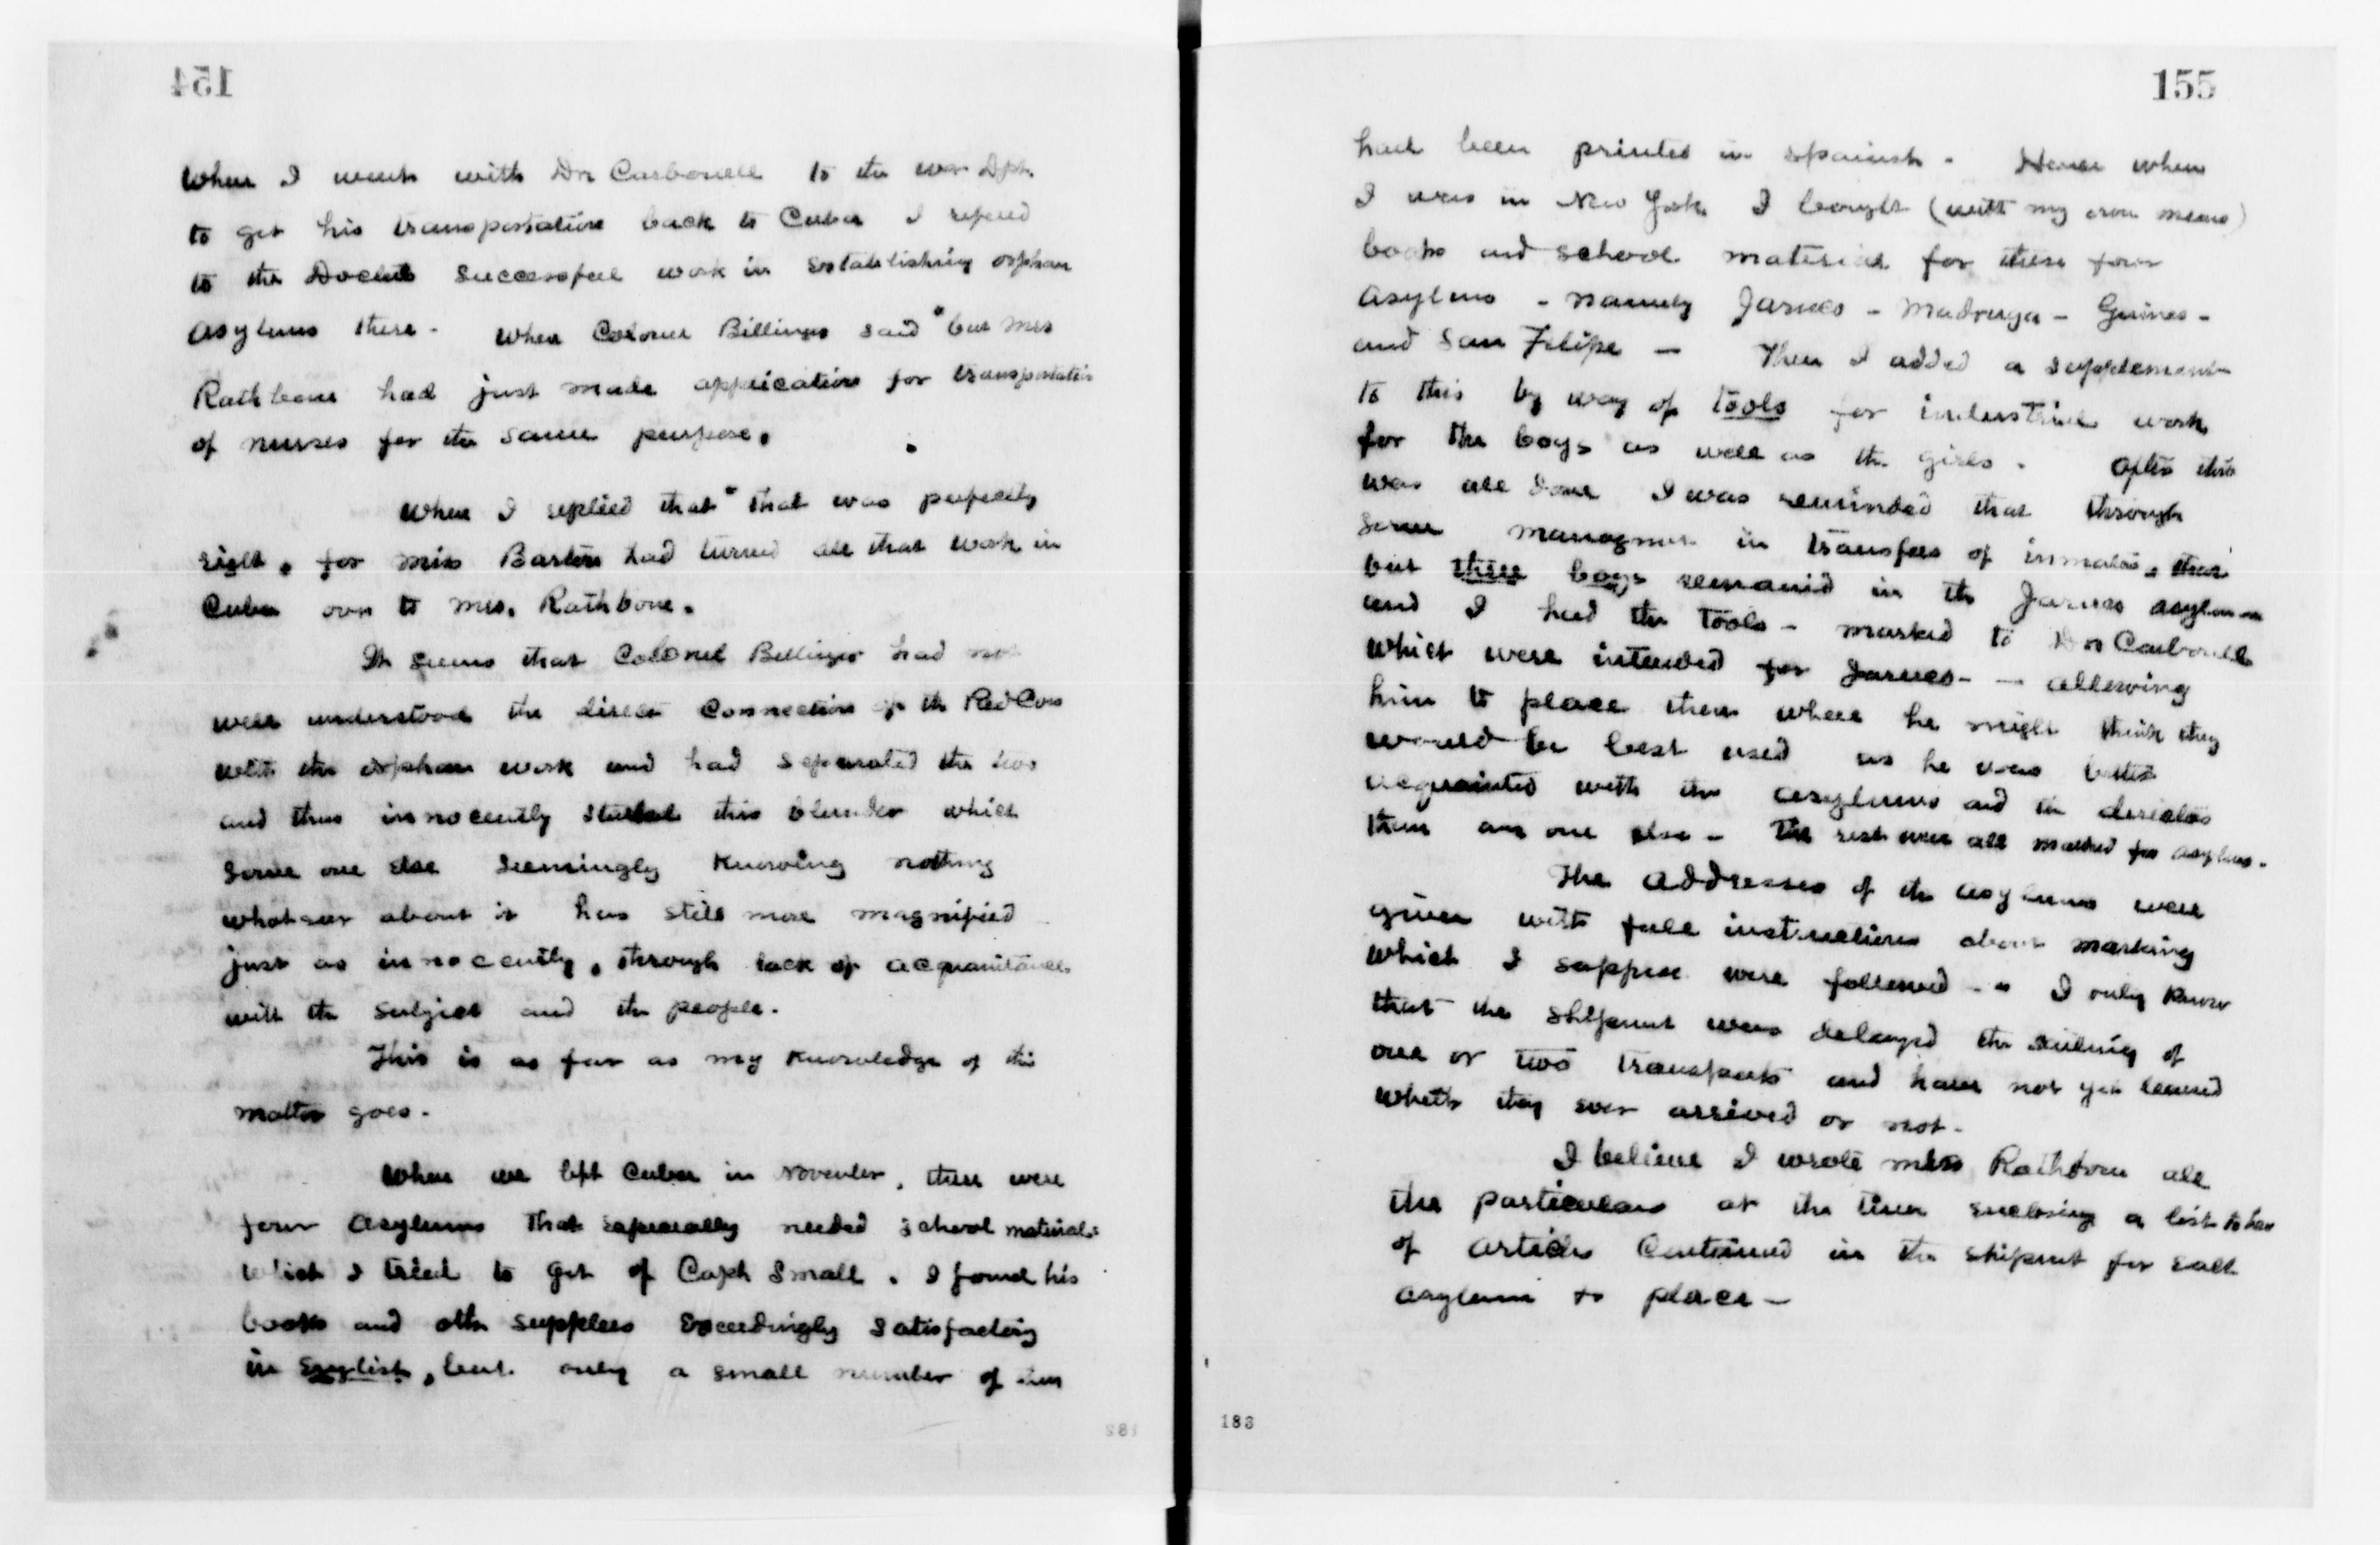 154
When I went with Dr Carbonell to the war Dpt.
to get his transportation back to Cuba I refered
to the Doctors successful work in establishing orphan
asylums there - When Colonel Billings said "but Mrs
Rathbone had just made application for transportation
of nurses for the same purpose.
When I replied that "that was perfectly
right, for Miss Barton had turned all that work in
Cuba over to Mrs. Rathbone.
It seems that Colonel Billings had not
well understood the direct connection of the Red Cross
with the orphan work and had separated the two
and thus innocently started this blunder which
some one else seemingly knowing nothing
whatever about it has still more magnified
just as innocently, through lack of acquaintance
with the subject and the people.
This is as far as my knowledge of this
matter goes -
When we left Cuba in November, there were
four asylums that especially needed school materials
which I tried to get of Capt Small. I found his
books and other supplies exceedingly satisfactory
in English, but only a small number of them
182
155
had been printed in Spanish - Hence when
I was in New York I bought (with my own means)
books and school material for these four
asylums - namely Jaruco - Madruga - Guines -
and San Felipe — Then I added a supplement
to this by way of tools for industrial work
for the boys as well as the girls - After this
was all done I was reminded that through
some in transfers of inmates, that
but three boys remained in the Jaruco asylum
and I had the tools - marked to Dr Carbonell
which were intended for Jaruco - - allowing
him to place them where he might think they
would be best used as he was better
acquainted with the asylums and the
than any one else - The rest were all marked for asylums.
The addresses of the asylums were
given with full instructions about marking
which I suppose were followed - - I only know
that the shipment was delayed the sailing of
one or two transports and have not yet learned
whether they ever arrived or not -
I believe I wrote Mrs Rathbone all
the particulars at the time enclosing a list to her
of articles contained in the shipment for each
asylum or place —
183